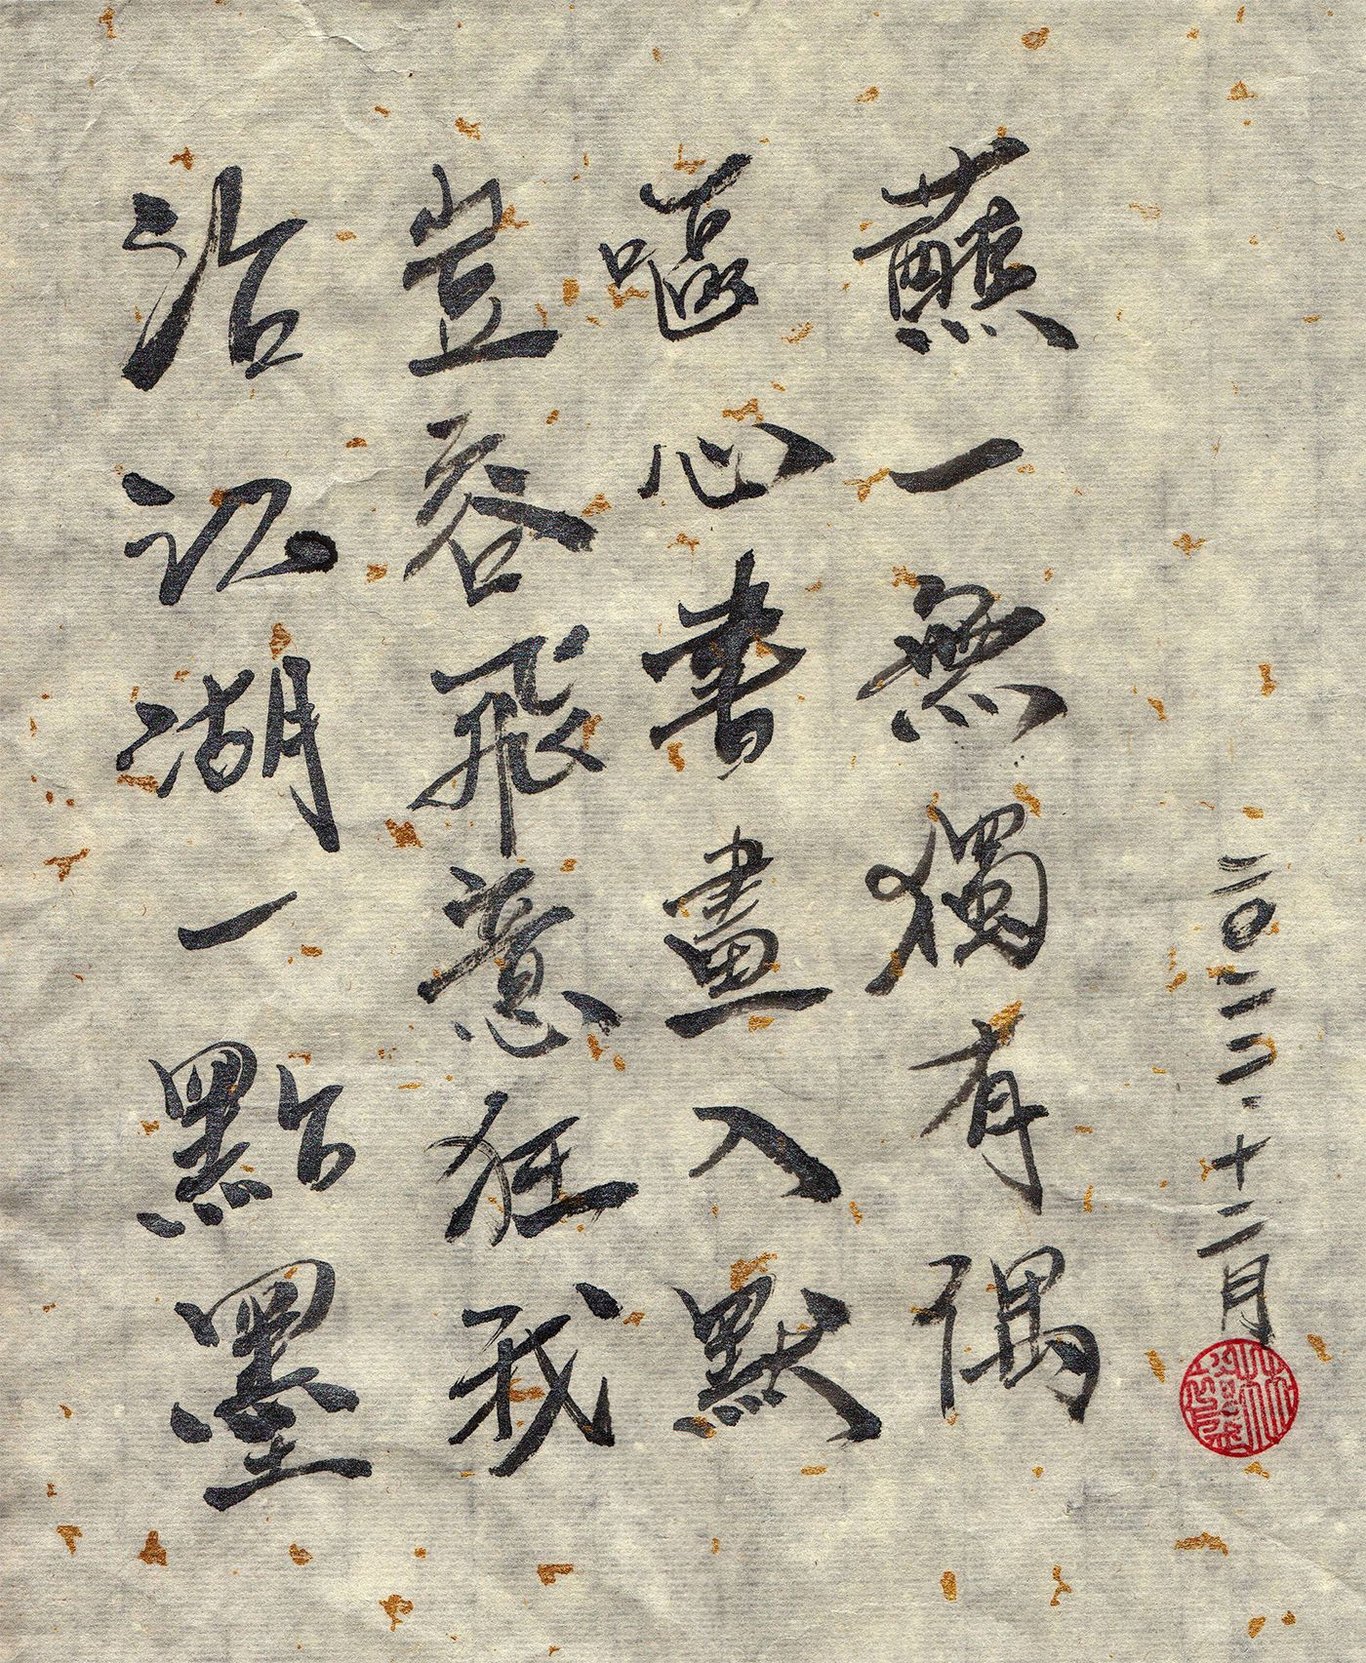 沾江湖一點墨
豈容飛意狂我
嘔心書畫入默
蘸一無獨有偶
二〇二二.十二月